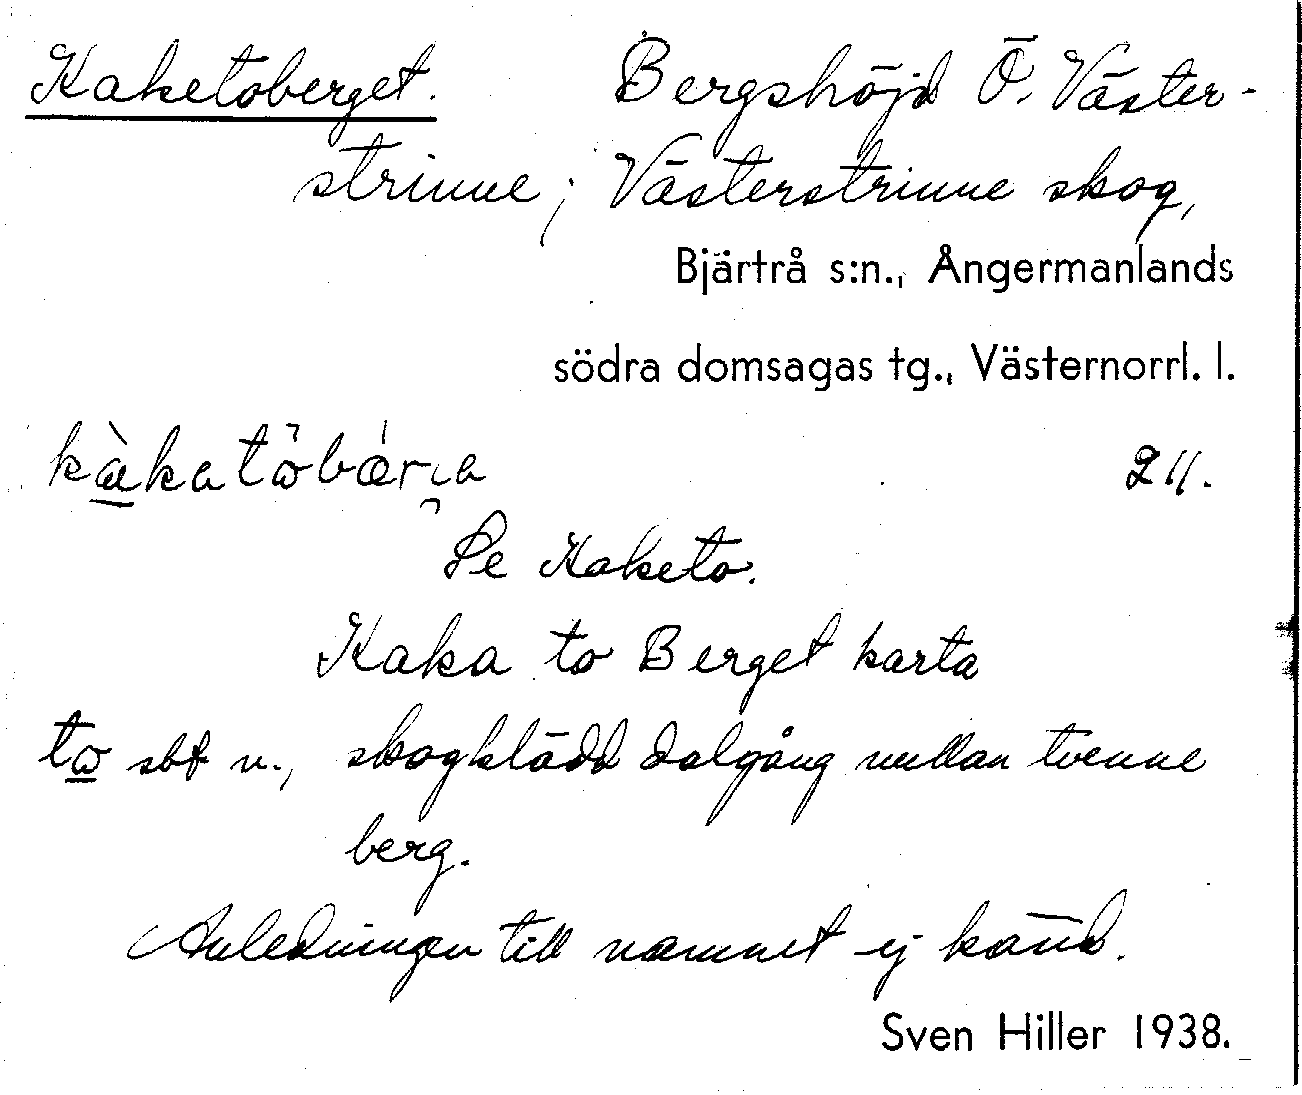 Kaketoberget. Bergshöjd Ö. Väster-
strinne; Västerstrinne skog,
Bjärtrå s:n., Ångermanlands
södra domsagas tg., Västernorrl. l.
211.
Se Kaketo.
Kaka to Berget karta
to sbt n., skogklädd dalgång mellan tvenne
berg.
Anledningen till namnet ej känd.
Sven Hiller 1938.